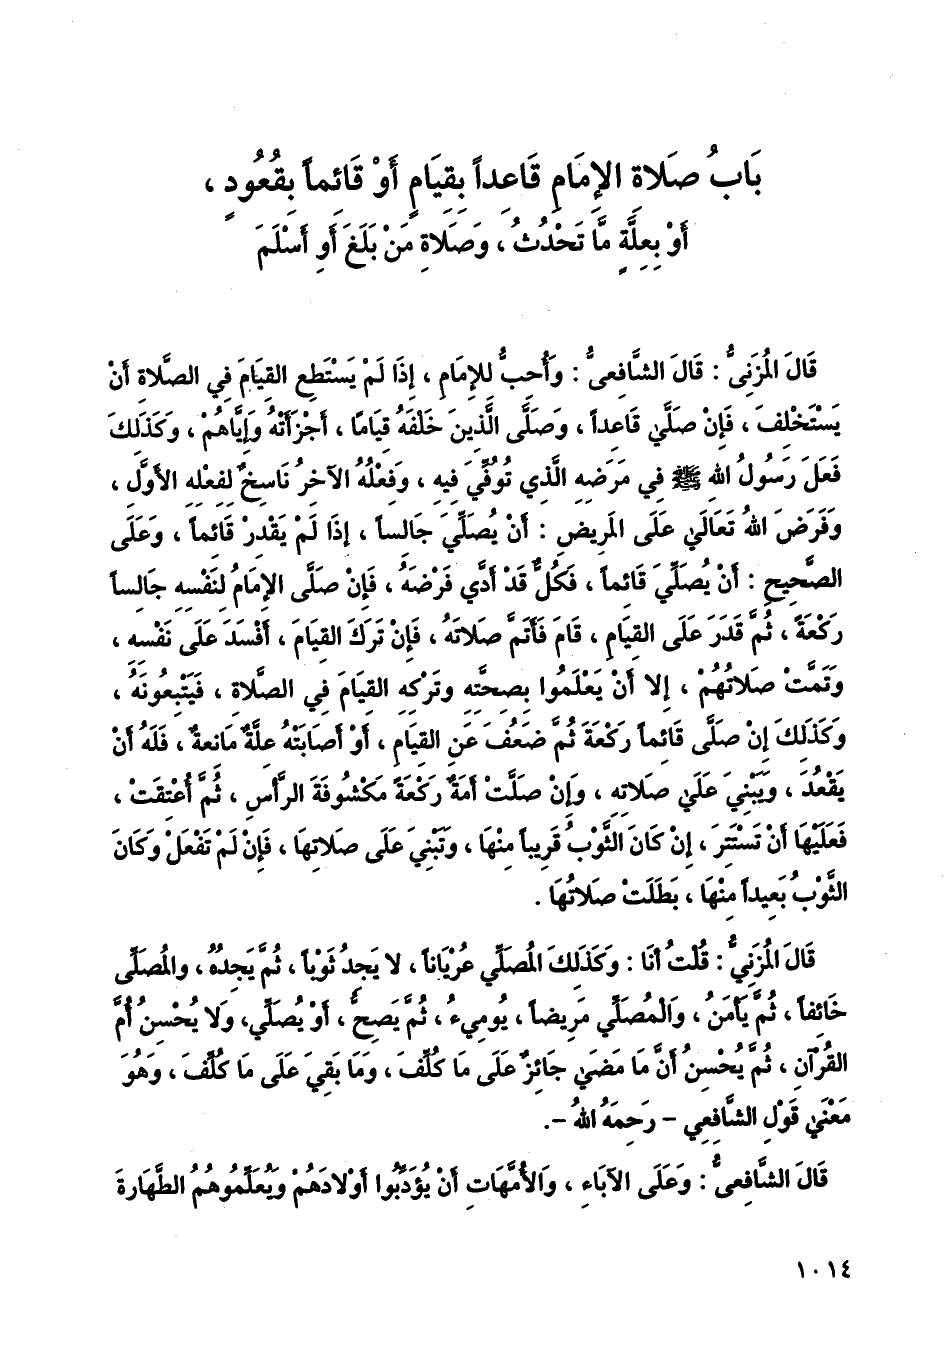 بَابُ صَلَاةِ الإِمَامِ قَاعِداً بِقِيَامٍ أَوْ قَائِماً بِقُعُودٍ ،
أَوْ بِعِلَّةٍ مَّا تَحْدُثُ ، وَصَلَاةِ مَنْ بَلَغَ أَوِ أَسْلَمَ
قَالَ المُزَنِىُّ : قَالَ الشَّافِعِىُّ : وَأُحِبُّ لِلإِمَامِ ، إِذَا لَمْ يَسْتَطِعِ القِيَامَ فِي الصَّلَاةِ أَنْ
يَسْتَخْلِفَ ، فَإِنْ صَلَّىٰ قَاعِداً ، وَصَلَّى الَّذِينَ خَلْفَهُ قِيَامًا ، أَجْزَأَتْهُ وَإِيَّاهُمْ ، وَكَذَلِكَ
فَعَلَ رَسُولُ اللهِ ﷺ فِي مَرَضِهِ الَّذِي تُوُفِّيَ فِيهِ ، وَفِعْلُهُ الآخِرُ نَاسِخٌ لِفِعْلِهِ الأَوَّلِ ،
وَفَرَضَ اللهُ تَعَالَىٰ عَلَى المَرِيضِ : أَنْ يُصَلِّيَ جَالِساً ، إِذَا لَمْ يَقْدِرْ قَائِماً ، وَعَلَى
الصَّحِيحِ : أَنْ يُصَلِّيَ قَائِماً ، فَكُلٌّ قَدْ أَدَّي فَرْضَهُ ، فَإِنْ صَلَّى الإِمَامُ لِنَفْسِهِ جَالِساً
رَكْعَةً ، ثُمَّ قَدَرَ عَلَى القِيَامِ ، قَامَ فَأَتَمَّ صَلَاتَهُ ، فَإِنْ تَرَكَ القِيَامَ ، أَفْسَدَ عَلَى نَفْسِهِ ،
وَتَمَّتْ صَلَاتُهُمْ ، إِلا أَنْ يَعْلَمُوا بِصِحَّتِهِ وَتَرْكِهِ القِيَامَ فِي الصَّلَاةِ ، فَيَتَّبِعُونَهُ ،
وَكَذَلِكَ إِنْ صَلَّى قَائِماً رَكْعَةً ثُمَّ ضَعُفَ عَنِ القِيَامِ ، أَوْ أَصَابَتْهُ عِلَّةٌ مَانِعَةٌ ، فَلَهُ أَنْ
يَقْعُدَ ، وَيَبْنِيَ عَلَىٰ صَلَاتِهِ ، وَإِنْ صَلَّتْ أَمَةٌ رَكْعَةً مَكْشُوفَةَ الرَّأْسِ ، ثُمَّ أُعْتِقَتْ ،
فَعَلَيْهَا أَنْ تَسْتَتِرَ ، إِنْ كَانَ الثَّوْبُ قَرِيباً مِنْهَا ، وَتَبْنِيَ عَلَى صَلَاتِهَا ، فَإِنْ لَمْ تَفْعَلْ وَكَانَ
الثَّوْبُ بَعِيداً مِنْهَا ، بَطَلَتْ صَلَاتُهَا .
قَالَ المُزَنِيُّ : قُلْتُ أَنَا : وَكَذَلِكَ المُصَلِّي عُرْيَاناً ، لا يَجِدُ ثَوْباً ، ثُمَّ يَجِدُهُ ، والمُصَلِّى
خَائِفاً ، ثُمَّ يَأْمَنُ ، وَالْمُصَلِّي مَرِيضاً ، يُومِيءُ ، ثُمَّ يَصِحُّ ، أَوْ يُصَلِّي، وَلا يُحْسِنُ أُمَّ
القُرْآنِ ، ثُمَّ يُحْسِنُ أَنَّ مَا مَضَىٰ جَائِزٌ عَلَى مَا كُلِّفَ ، وَمَا بَقِيَ عَلَى مَا كُلِّفَ ، وَهُوَ
مَعْنَىٰ قَوْلِ الشَّافِعِي - رَحِمَهُ اللهُ -.
قَالَ الشَّافِعِىُّ : وَعَلَى الآبَاءِ ، وَالأُمَّهَاتِ أَنْ يُؤَدِّبُوا أَوْلادَهُمْ وَيُعَلِّمُوهُمُ الطَّهَارَةَ
١٠١٤